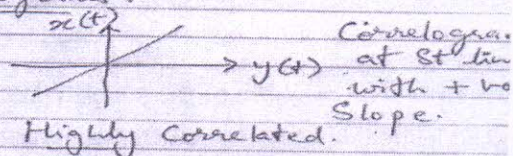 x(t)
Correlogra
y(t) at St lin
with + ve
Slope.
Highly Correlated.